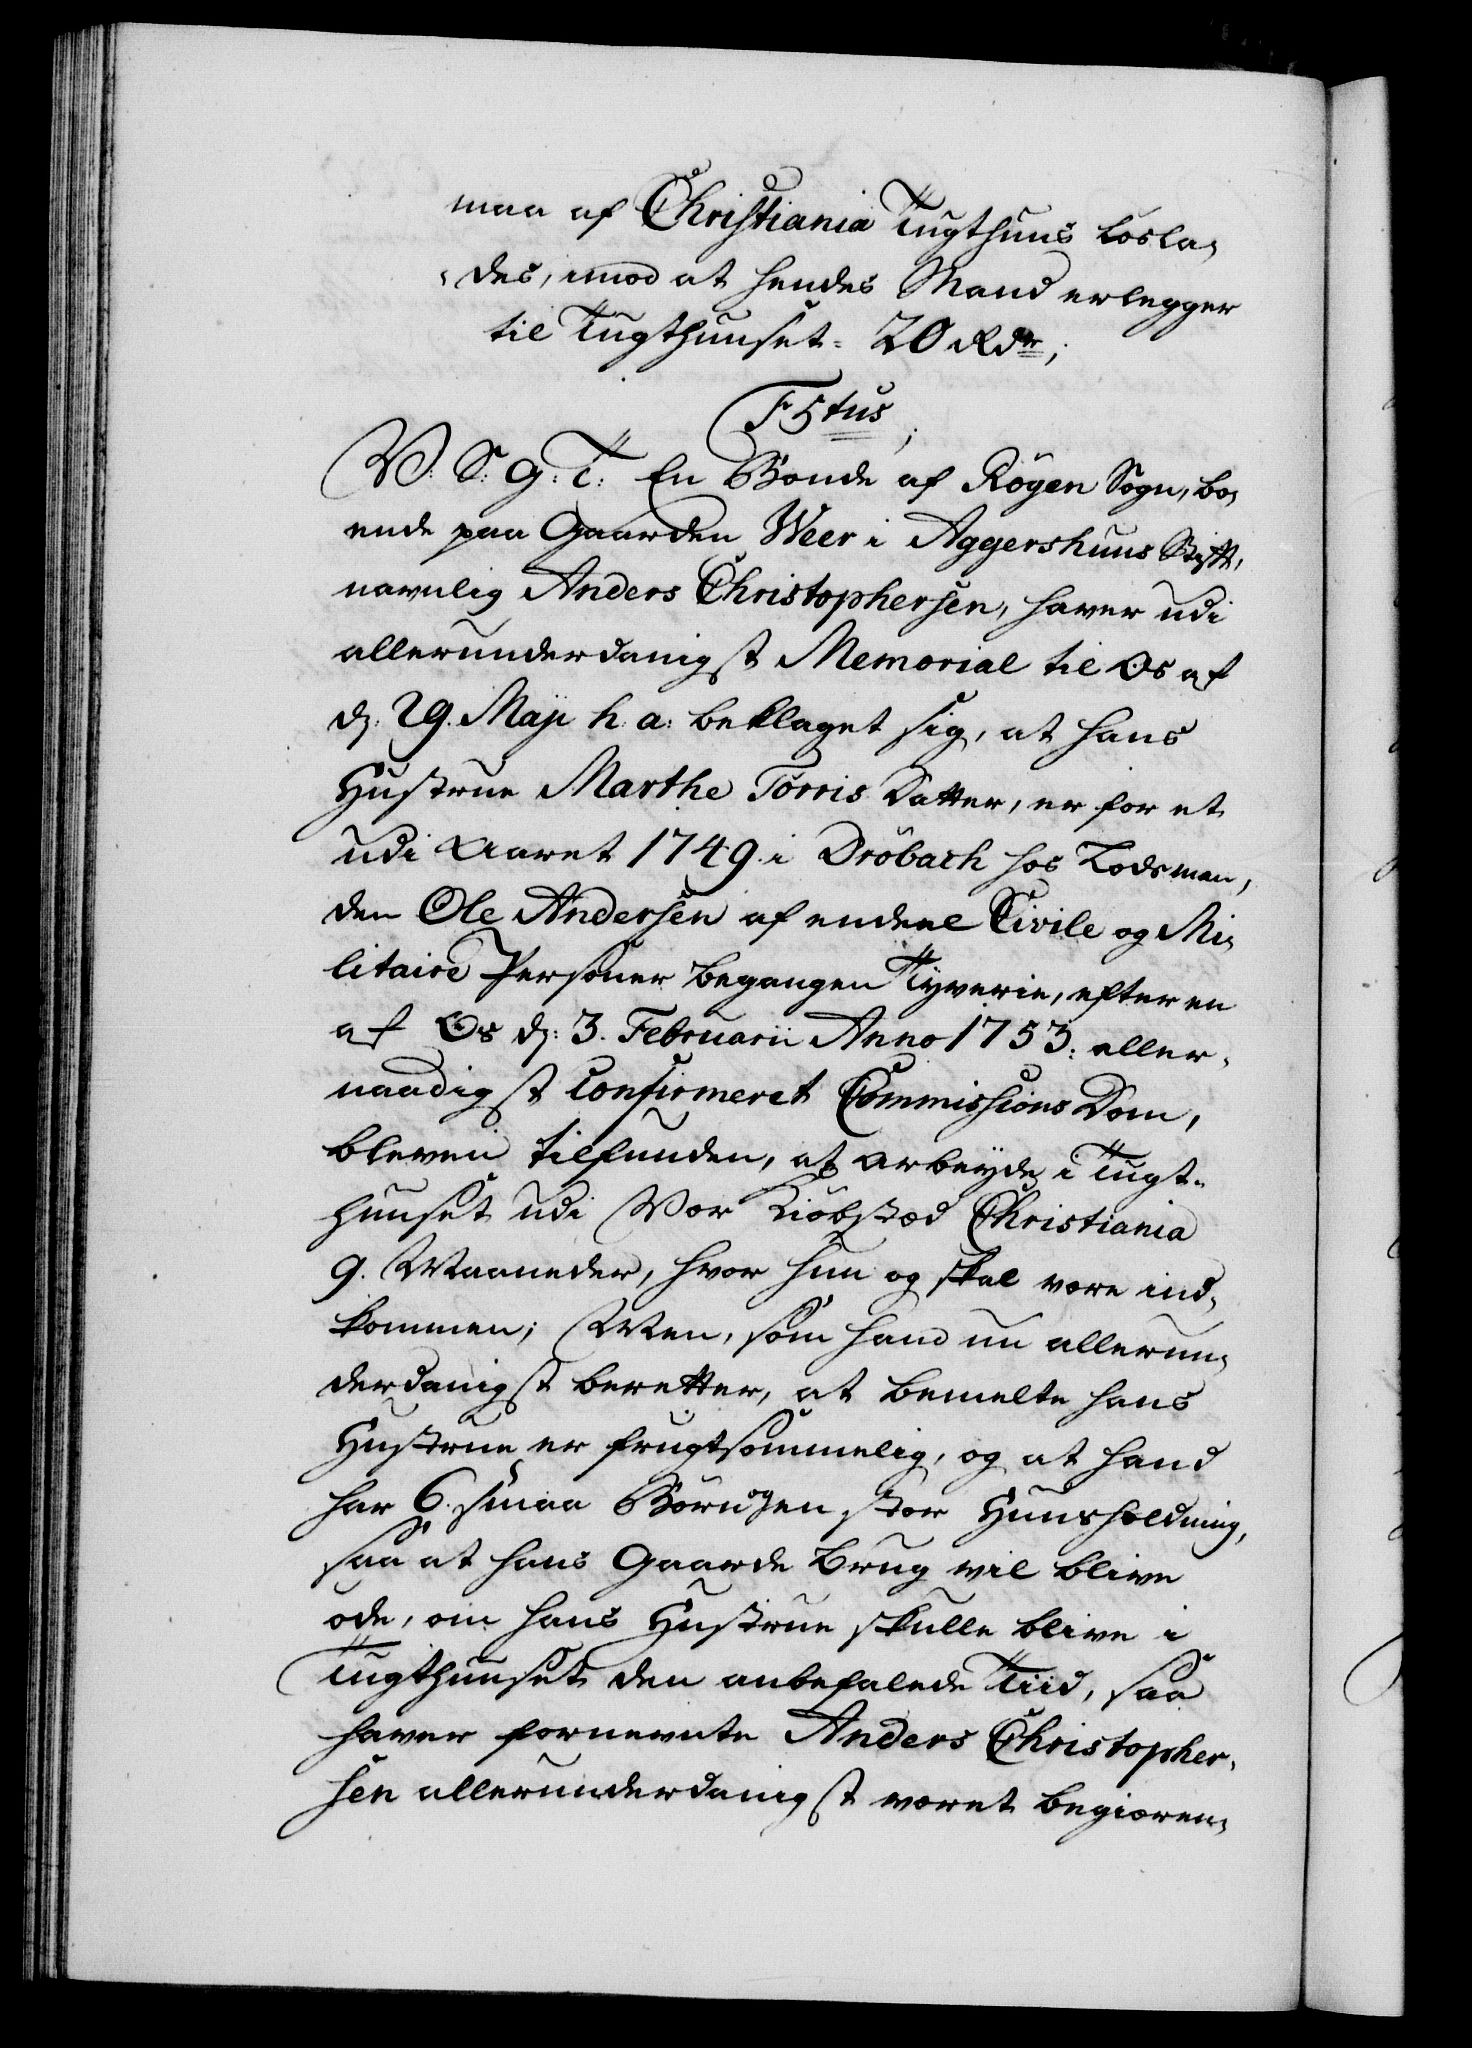 maa af Christiania Tugthuus losla,
,des, imod at hendes Mand erlegger
til Tugthuuset. 20 Rdr;
F5tus,
V. S: G: T: En Bonde af Rögen Sogn, bo,
ende paa Gaarden Weer i Aggershuus Stift,
navnlig Anders Christophersen, haver udi
allerunderdanigst Memorial til Os af
d: 29. Maji h: a: beklaget sig, at hans
Hustrue Marthe Torris Datter, er for et
udi Aaret 1749. i Dröbach hos Lodsman,
den Ole Andersen af endeel Civile og Mi,
litaire Personer begangen Tyverie, efter en
af Os d: 3. Februarii Anno 1753: aller,
naadigst confirmeret Commissions Dom,
bleven tilfunden, at arbeyde i Tugt,
huuset udi Vor Kiöbstæd Christiania
9. Maaneder, hvor hun og skal være ind,
kommen; Men, som hand nu allerun,
derdanigst beretter, at bemelte hans
Hustrue er frugtsommelig, og at hand
har 6. smaa Börn og en stor Huusholdning,
saa at hans Gaarde Brug vil blive
öde, om hans Hustrue skulle blive i
Tugthuuset den anbefalede Tiid, saa
haver fornevnte Anders Christopher,
sen allerunderdanigst været begiæren,